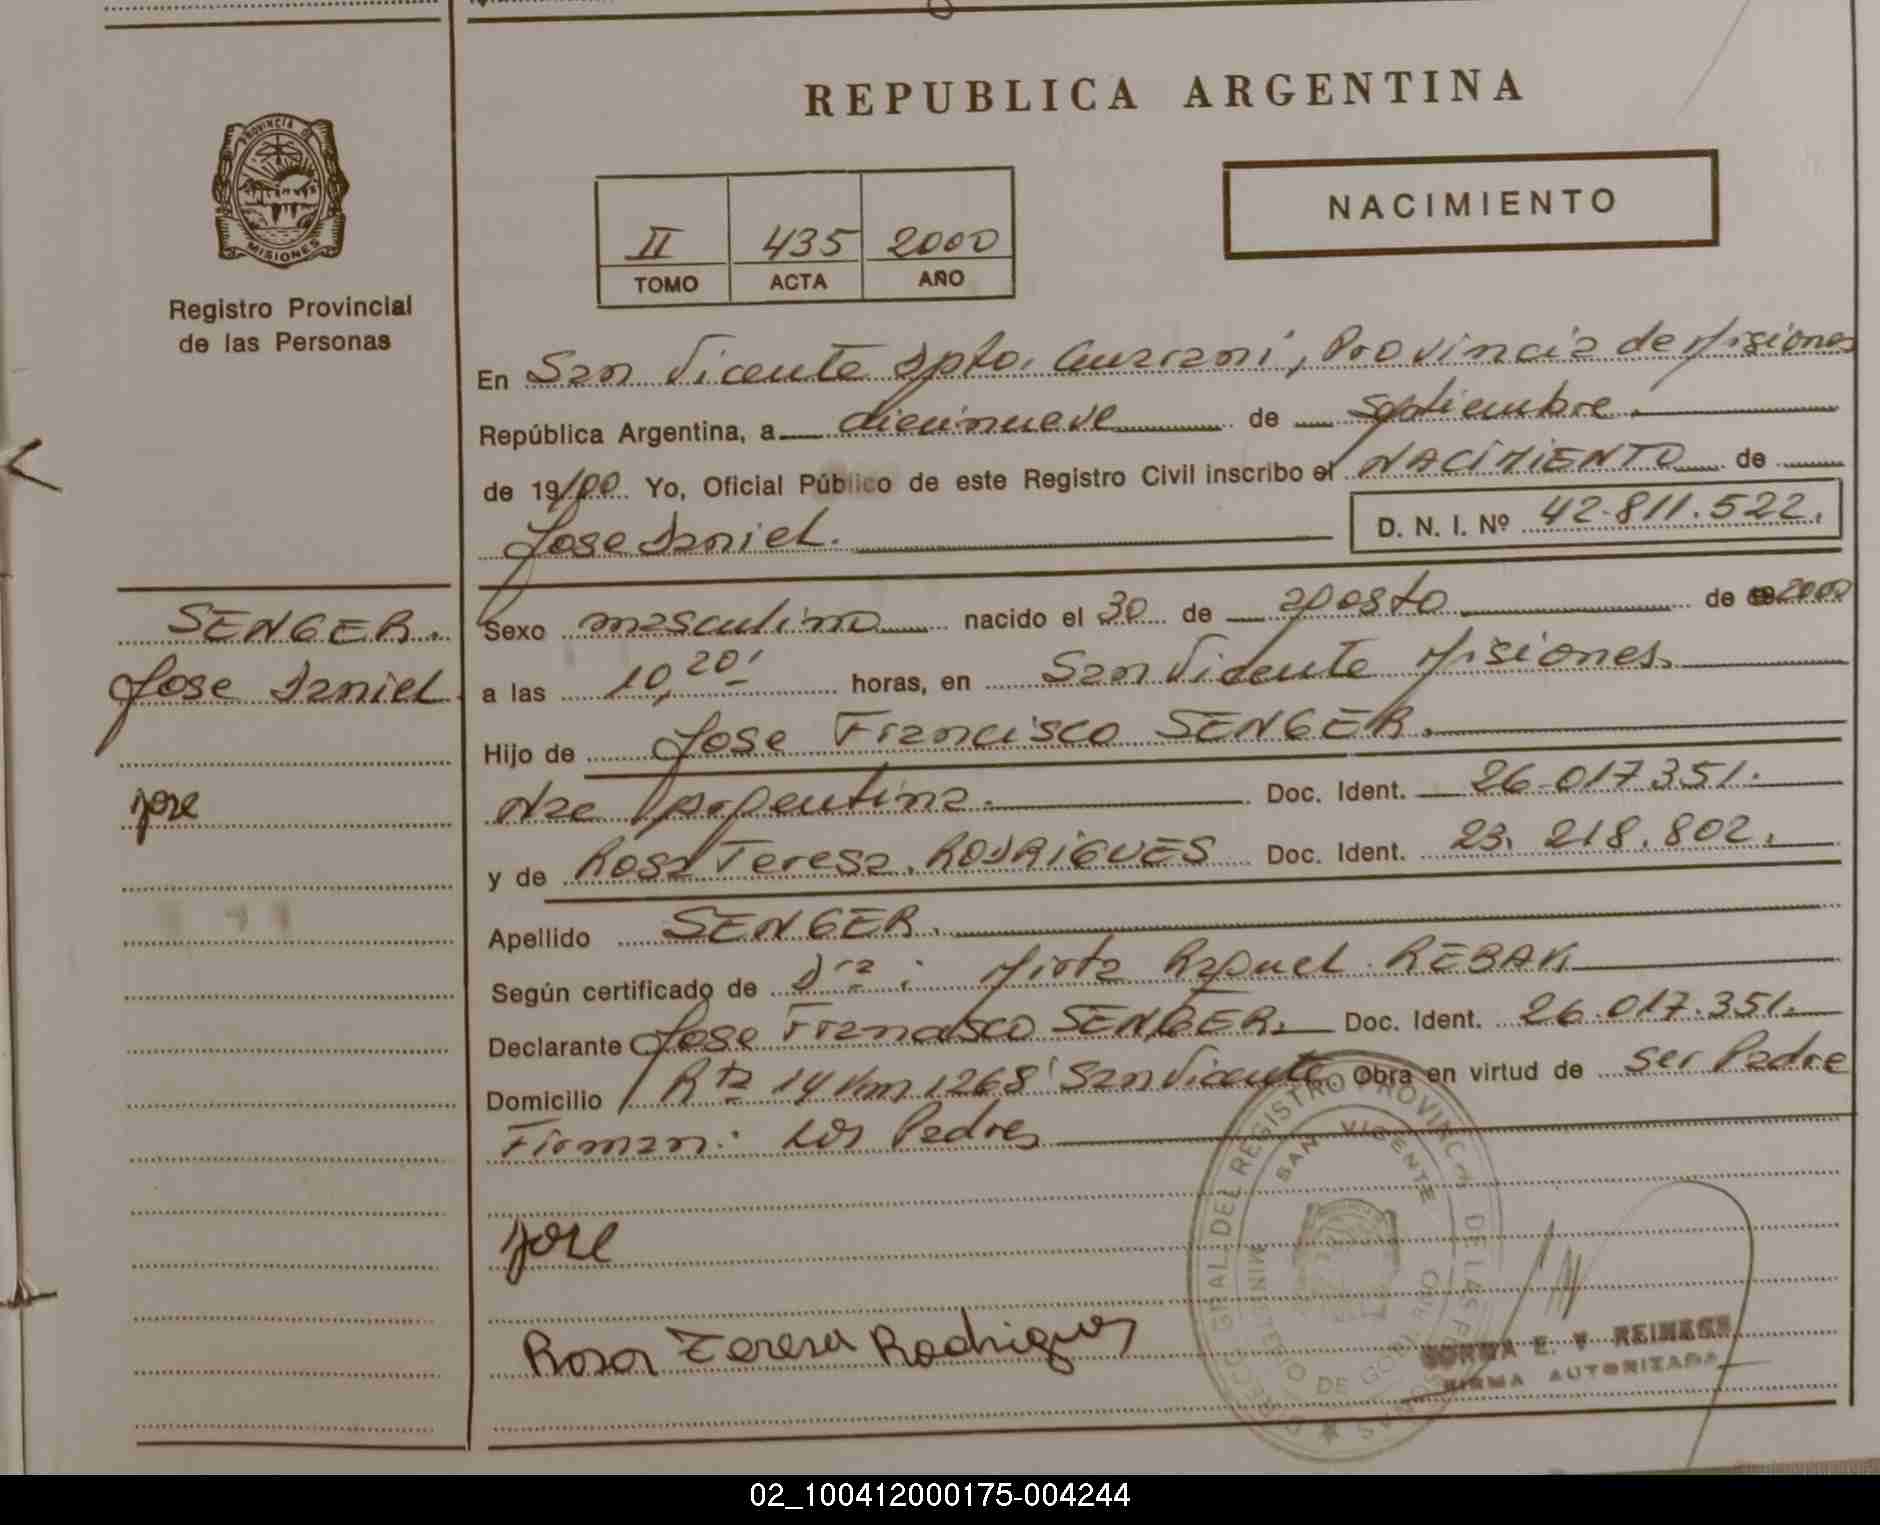 REPUBLICA ARGENTINA
PROVINCIA DE
MISIONES
Registro Provincial
de las Personas
NACIMIENTO
II 435 2000
TOMO ACTA AÑO
En San Vicente Dpto. Guarani, Provincia de Misiones
República Argentina, a diecinueve de septiembre.
de 19/00 Yo, Oficial Público de este Registro Civil inscribo el NACIMIENTO de
Jose Daniel. D. N. I. Nº 42.811.522.
SENGER.
Jose Daniel
Jose
Sexo masculino nacido el 30 de agosto de 2000
a las 10,20' horas, en San Vicente Misiones.
Hijo de Jose Francisco SENGER.
Nac Argentina. Doc. Ident. 26.017.351.
y de Rosa Teresa RODRIGUES Doc. Ident. 23.218.802.
Apellido SENGER.
Según certificado de Dra: Mirta Raquel REBAK
Declarante Jose Francisco SENGER. Doc. Ident. 26.017.351.
Domicilio Rta 14 Km 1268 San Vicente Obra en virtud de Ser Padre
Firman: Los Padres
Jose
Rosa Teresa Rodrigues
DIREC. GRAL DEL REGISTRO PROVINCIAL DE LAS PERSONAS
SAN VICENTE
MINISTERIO DE GOBIERNO
NORMA E. V. REINECK
FIRMA AUTORIZADA
02_100412000175-004244